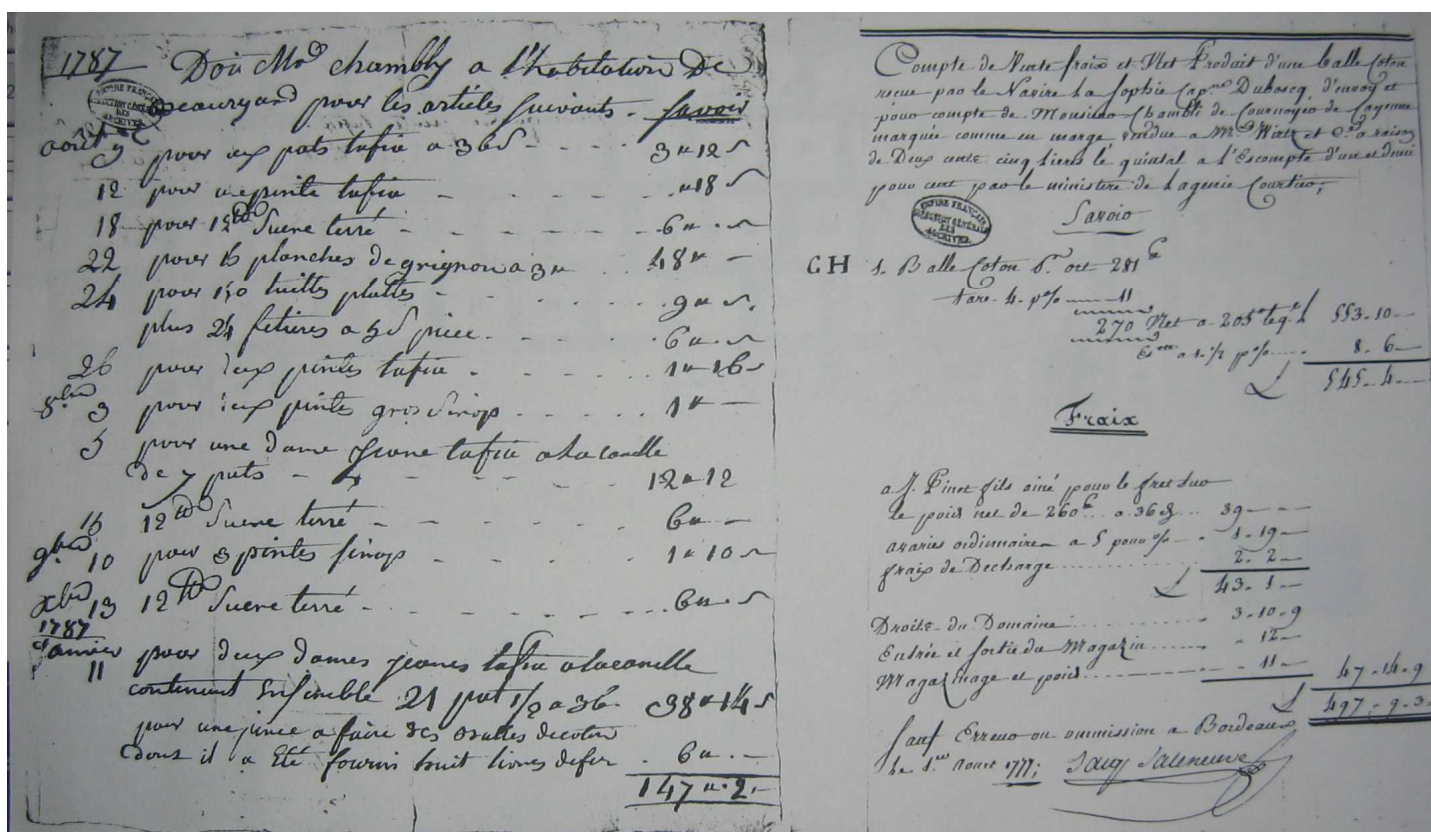 1787 Doit Mr chambly a l'habitation De
beauregard pour les articles suivants - savoir
EMPIRE FRANÇAIS
DIRECTION GÉNÉRALE
DES
ARCHIVES
août 9 pour deux pots tafia a 36 s - - - 3 " 12 s
12 pour une pinte tafia - - - - - . " 18 s
18 pour 12 tt Sucre terré - - - - - - 6 " . s
22 pour 16 planches de grignon a 3 " . . 48 " -
24 pour 150 tuilles plattes - . . . . . 9 " s.
plus 24 fetieres a 5 s piece . . . . 6 " . s
26 pour deux pintes tafia . . . . . 1 " 16 s
8bre 3 pour deux pintes gros Sirop . . . . . 1 " -
5 pour une dame Jeane tafia a la canelle
de 7 pots - - - - - - 12 " 12
15 12 tt Sucre terré - - - - - 6 " . -
9bre 10 pour 3 pintes sirop - - - - 1 " 10 s
xbre 13 12 tt Sucre terré - - - - - - 6 " . s
1787
Janvier
11 pour deux dames jeanes tafia a la canelle
contenant Ensemble 21 pot 1/2 a 36 . 38 " 14 s
pour une pince a faire des balles de coton
dont il a Eté fourni huit livres de fer . 6 " . -
147 " . 2 . -
Compte de Vente fraix et Net Produit d'une balle Coton
recue par le Navire La Sophie Capne Duboscq, d'envoy et
pour compte de Monsieur Chambli de Cournoyée de Cayenne
marquée comme en marge vendue a Mrs Wirtz et Cie a raison
de Deux cents cinq livres le quintal a l'Escompte d'un et demi
pour cent par le ministere de Lagenie Courtier;
Savoir
EMPIRE FRANÇAIS
DIRECTION GÉNÉRALE
DES
ARCHIVES
CH 1. Balle Coton pt. ort 281 tt
tare 4. p% 11
270 Net a 205 tt le ql. £ 553.10 -
Escte a 1.1/2 p% . . . . 8. 6 -
£ 545. 4 -
Fraix
a J. Pinet fils ainé pour le fret sur
le poids net de 260 tt . . a 36 . . 39 - -
avaries ordinnaires a 5 pour % - . 1. 19 -
fraix de Decharge . . . . . . . . . 2. 2 -
£ 43. 1 -
Droits du Domaine . . . . . . . 3. 10. 9
Entrée et sortie du Magazin . . . . - 12 -
Magazinage et poids . . . . . . . . - 11 - 47. 14. 9
£ 497. 9. 3
Sauf Erreur ou ommission a Bordeaux
Le 1.er aoust 1777;